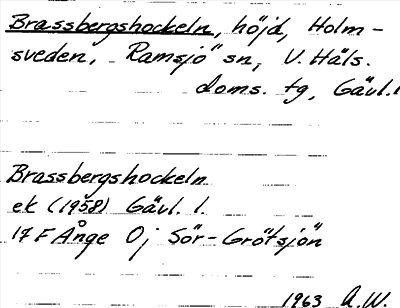 Brassbergshockeln, höjd, Holm-
sveden, Ramsjö sn, V. Häls.
doms. tg, Gävl. l
Brassbergshockeln
ek (1958) Gävl. l.
17 F Ånge Öj Sör-Grötsjön
1963 A.W.